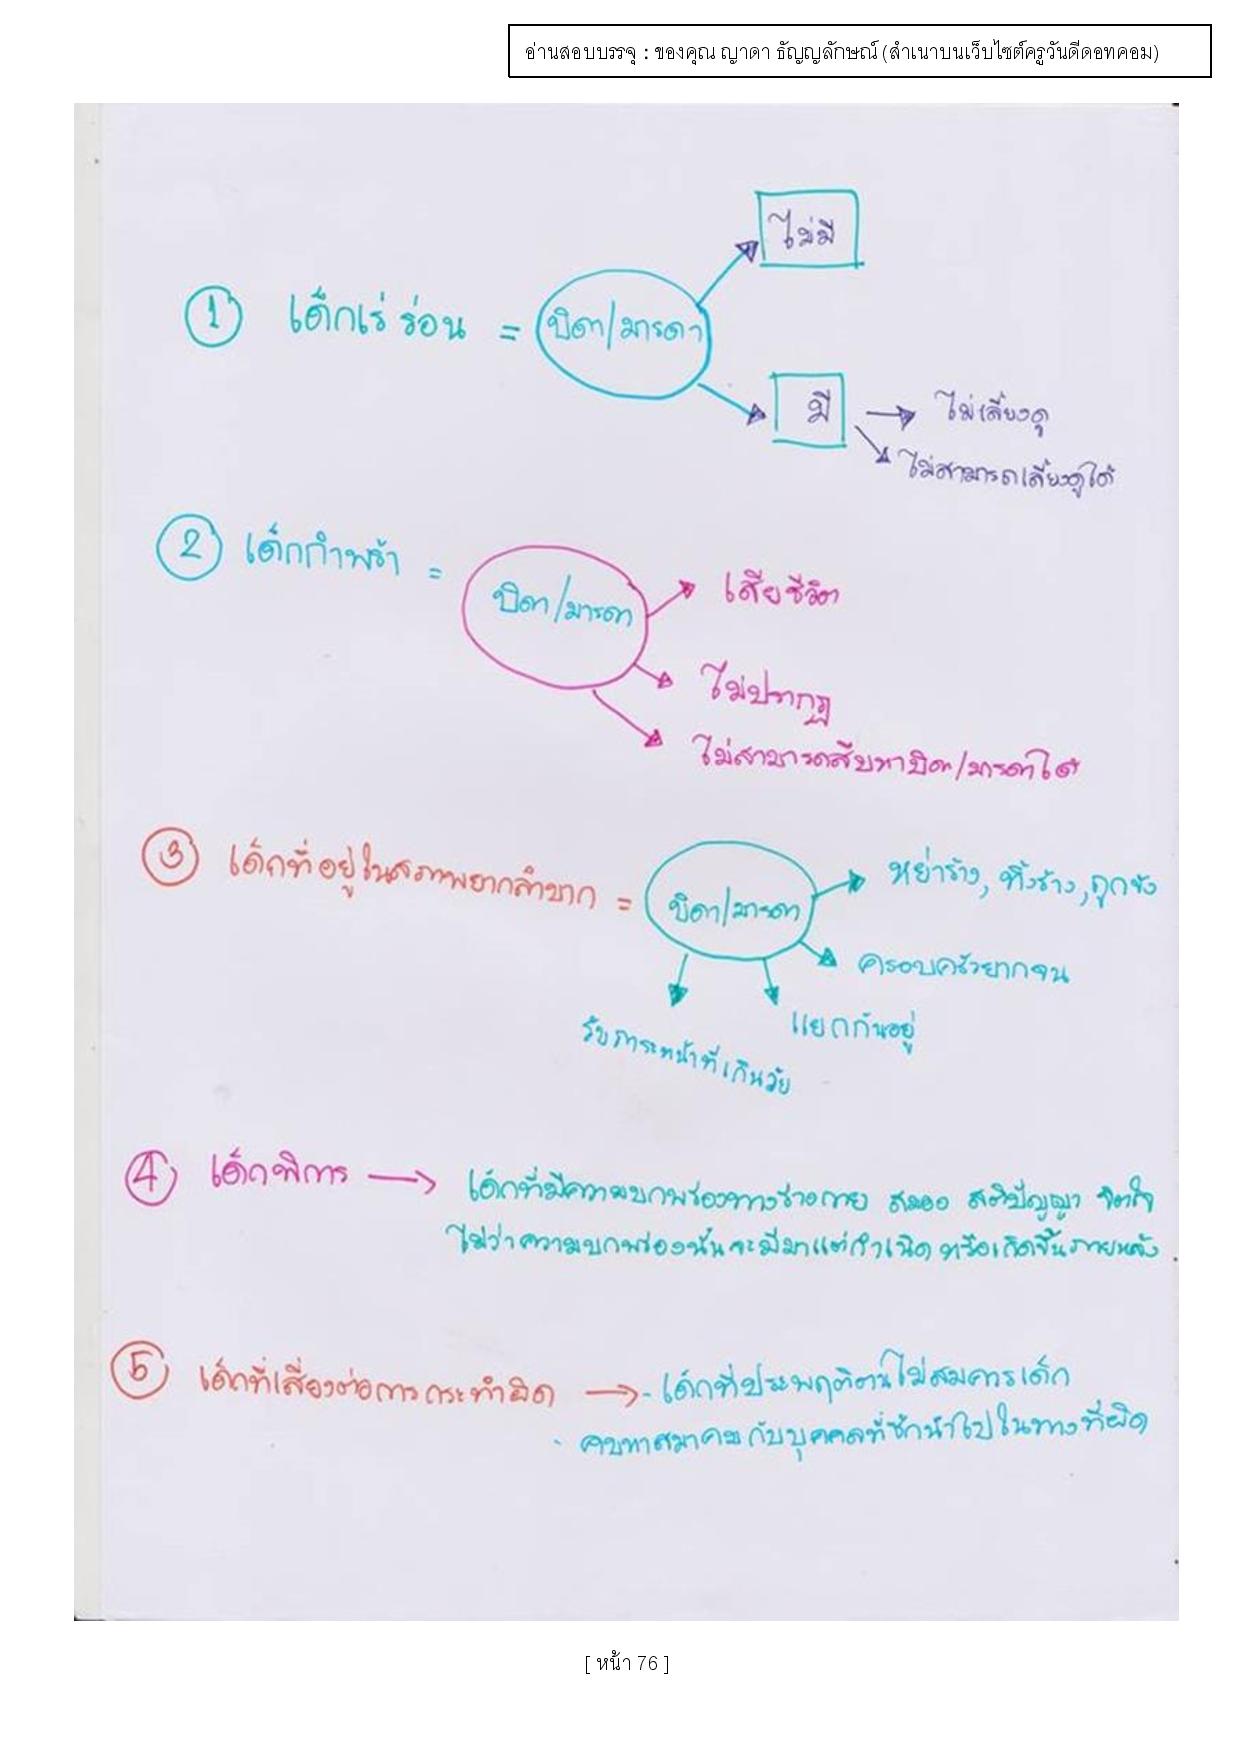 อ่านสอบบรรจุ : ของคุณ ญาดา ธัญญลักษณ์ (สำเนาบนเว็บไซต์ครูวันดีดอทคอม)
ไม่มี
① เด็กเร่ร่อน = บิดา/มารดา
มี → ไม่เลี้ยงดู
ไม่สามารถเลี้ยงดูได้
② เด็กกำพร้า = บิดา/มารดา
เสียชีวิต
ไม่ปรากฏ
ไม่สามารถสืบหาบิดา/มารดาได้
③ เด็กที่อยู่ในสภาพยากลำบาก = บิดา/มารดา
หย่าร้าง, ทิ้งร้าง, ถูกขัง
ครอบครัวยากจน
แยกกันอยู่
รับภาระหน้าที่เกินวัย
④ เด็กพิการ → เด็กที่มีความบกพร่องทางร่างกาย สมอง สติปัญญา จิตใจ
ไม่ว่าความบกพร่องนั้นจะมีมาแต่กำเนิด หรือเกิดขึ้นภายหลัง
⑤ เด็กที่เสี่ยงต่อการกระทำผิด → - เด็กที่ประพฤติตนไม่สมควรเด็ก
- คบหาสมาคมกับบุคคลที่ชักนำไปในทางที่ผิด
[ หน้า 76 ]